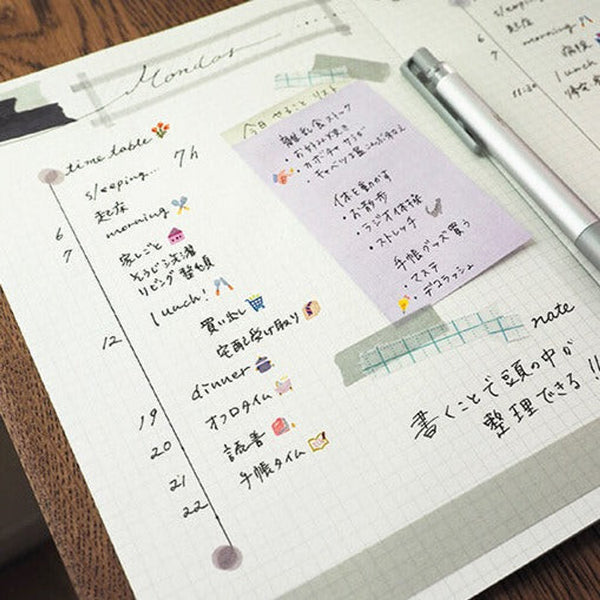 Monday
time table
sleeping... 7h
起床
6
morning
7
家しごと
そうじ 洗濯
リビング 整頓
lunch!
12
買い出し
宅配受け取り
dinner
19
オフロタイム
20
読書
21
手帳タイム
22
今日やること リスト
離乳食ストック
・お好み焼き
・カボチャサラダ
・キャベツ塩こんぶ和え
体を動かす
・お散歩
・ラジオ体操
・ストレッチ
手帳グッズ買う
・マステ
・デコラッシュ
note
書くことで頭の中が
整理できる!!
sleeping
起床
6
morning
7
lunch
11:30